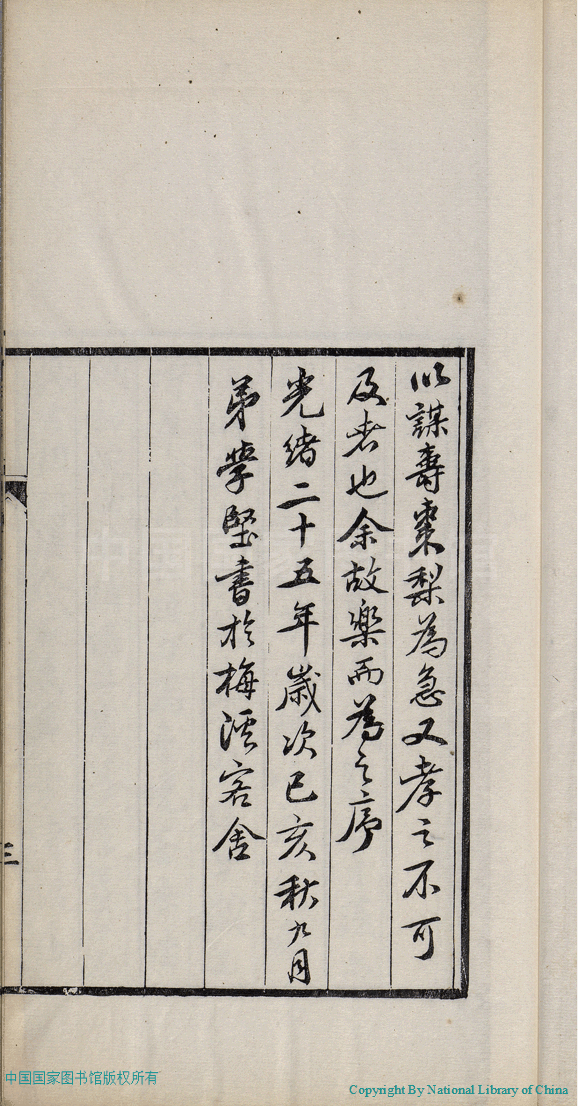 以謀壽棗梨為急又孝之不可
及者也余故樂而為之序
光緒二十五年歲次己亥秋九月
弟學堅書於梅溪客舍
三
中国国家图书馆版权所有
Copyright By National Library of China